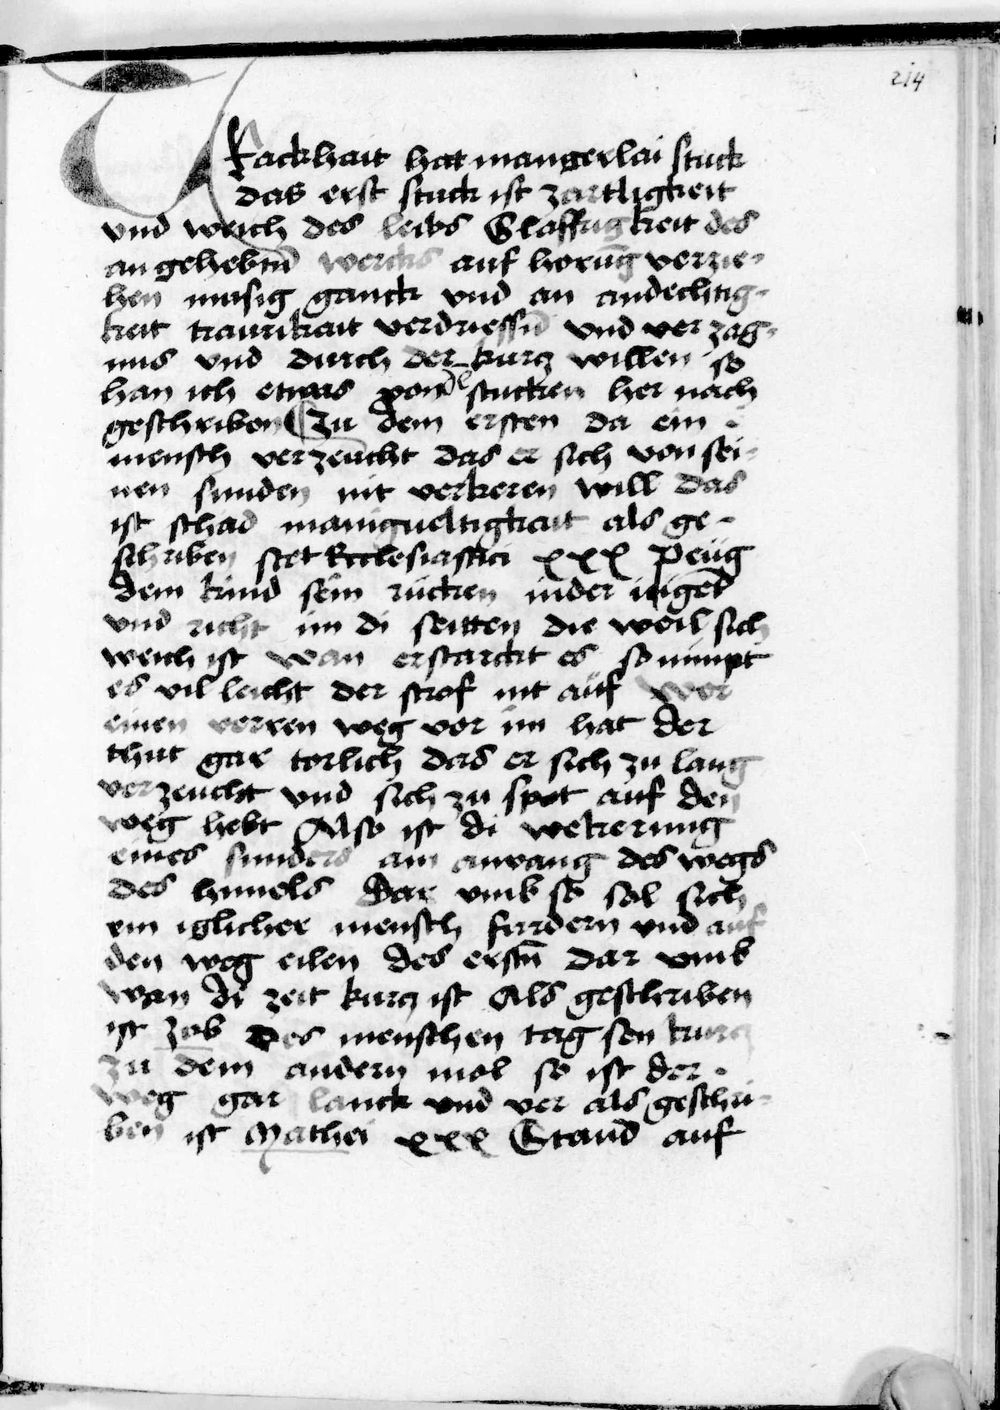 214
Trackhait hat mangerlai stuck
das erst stuck ist zartligkeit
vnd weich des leibs Slaffrigkeit des
an gehebtn̄ wercks auf horūg verzie-
hen musig ganck vnd an andechtig-
keit traurikait verdriessn̄ vnd verzag-
nus vnd durch der kurcz willen so
han ich etwas von stucken her nach
geschriben Zu dem ersten da ein
mensch verzeucht das er sich von sei-
nen sunden nit verkeren will das
ist schad manigueltigkait als ge-
schriben stet Ecclesiastici xxx Peüg
dem kind sein rücken inder iuget
vnd richt im di seitten die weil sich
weich ist wan erstarckt es so nimpt
es vil leicht der strof nit auf wer
einen verren weg vor im hat der
thut gar torlich das er sich zu lang
verzeucht vnd sich zu spot auf den
weg hebt Also ist di wekerung
eines sunders am anvang des wegs
des himels Dar vmb so sol sich
ein iglicher mensch furdern vnd auf
den weg eilen des erstn̄ dar vmb
wan di zeit kurcz ist Als geschriben
ist Job Des menschen tag sen kurcz
zu dem andern mol so ist der
weg gar lanck vnd ver als geschri-
ben ist Mathei xxx Stand auf